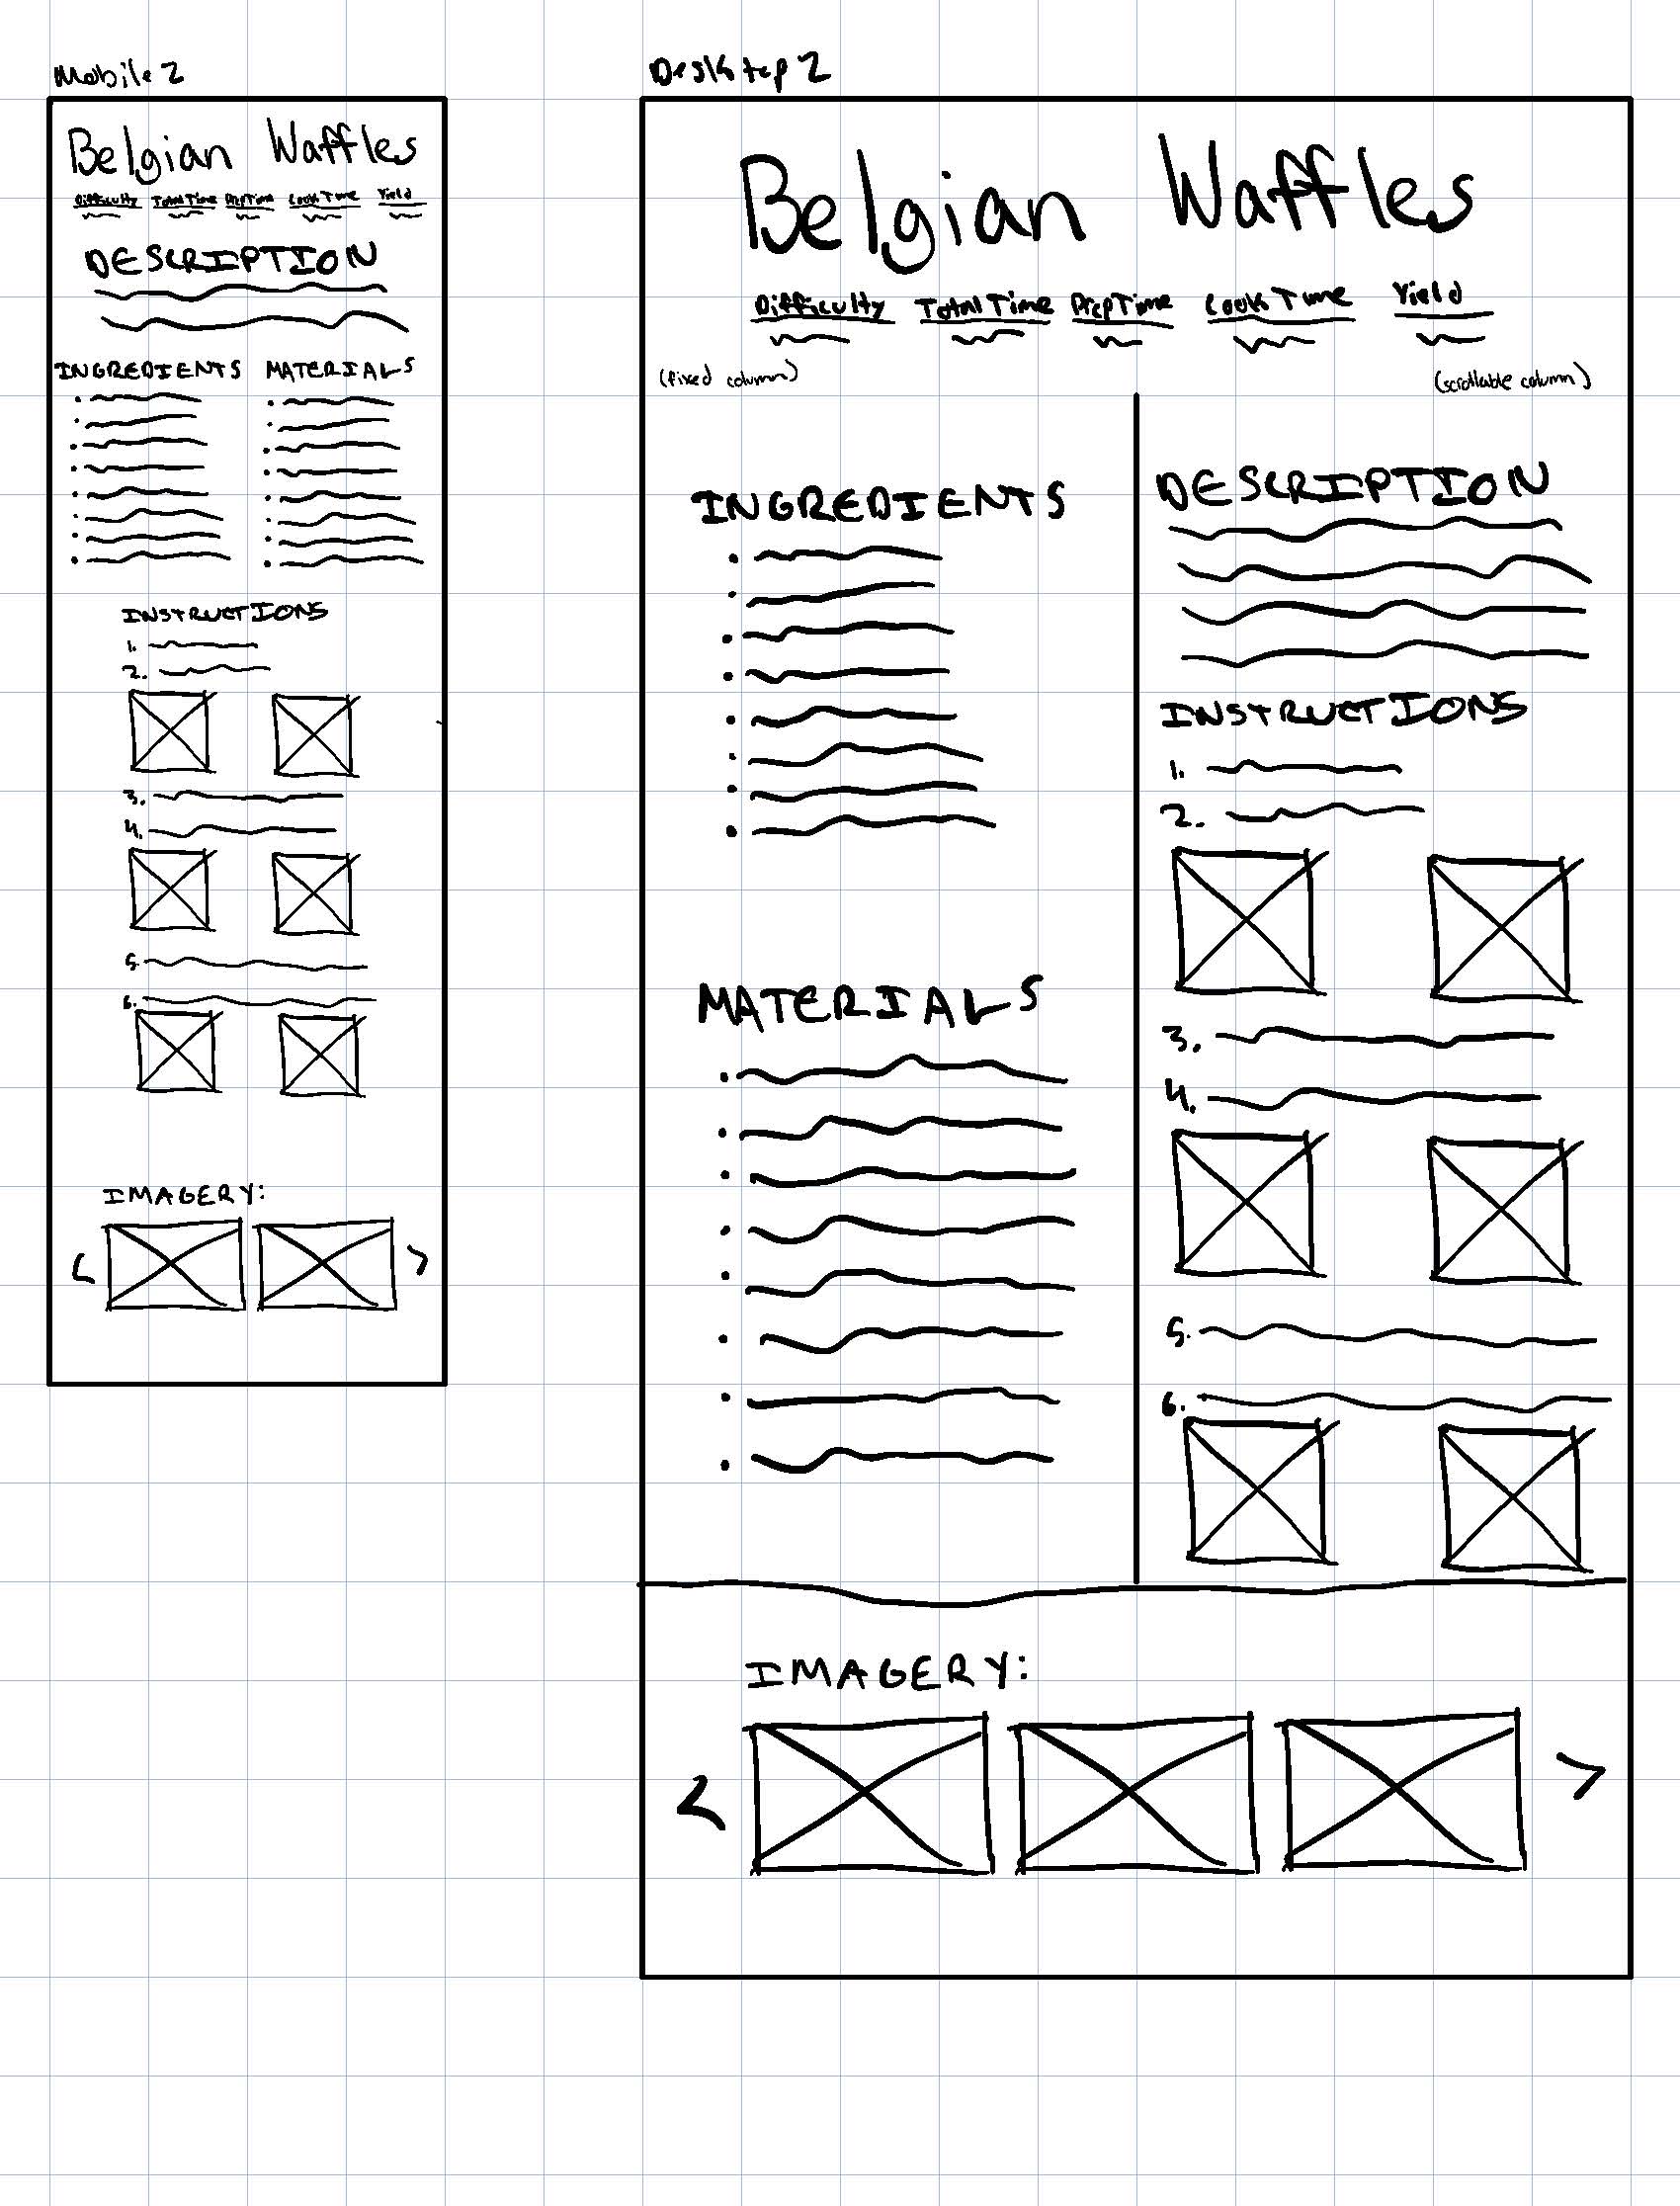 Mobile 2
Belgian Waffles
Difficulty Total Time PrepTime Cook Time Yield
DESCRIPTION
INGREDIENTS MATERIALS
INSTRUCTIONS
1.
2.
3.
4.
5.
6.
IMAGERY:
< >
Desktop 2
Belgian Waffles
Difficulty Total Time PrepTime Cook Time Yield
(fixed column) (scrollable column)
INGREDIENTS
MATERIALS
DESCRIPTION
INSTRUCTIONS
1.
2.
3.
4.
5.
6.
IMAGERY:
< >